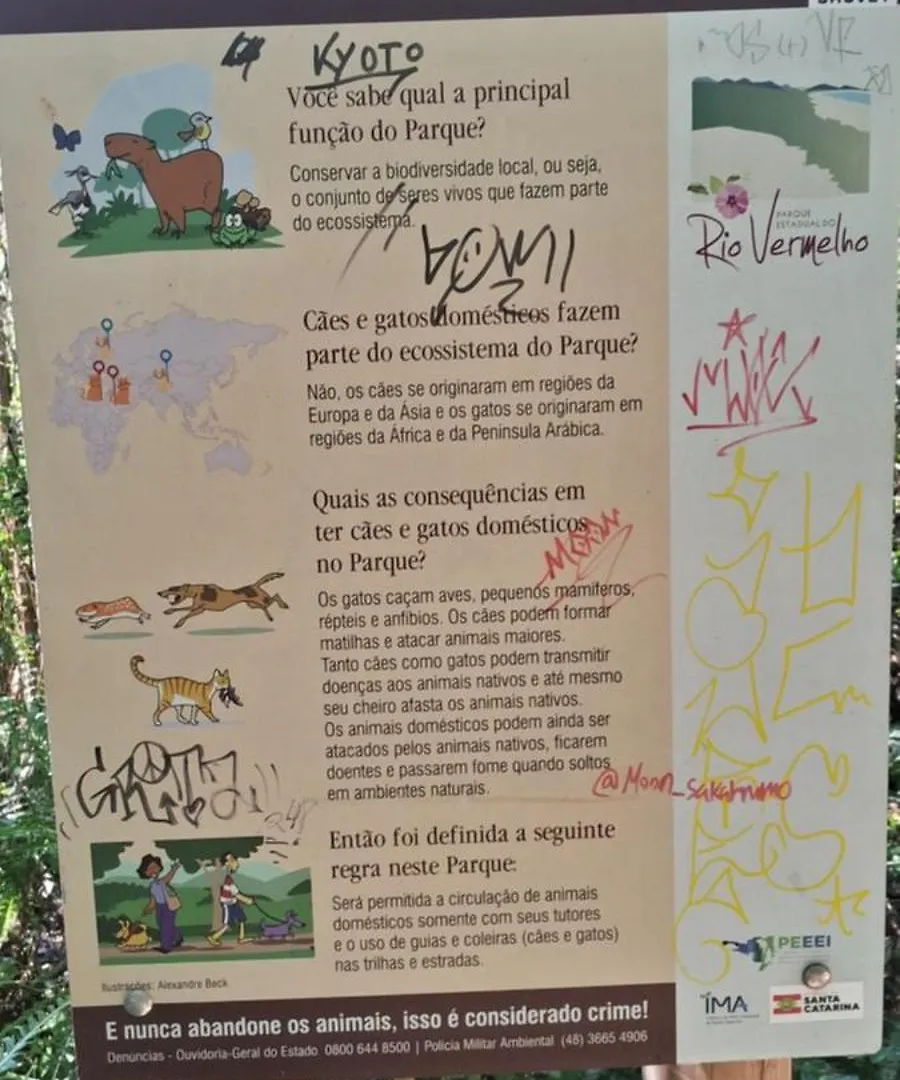 KYOTO
Você sabe qual a principal
função do Parque?
Conservar a biodiversidade local, ou seja,
o conjunto de seres vivos que fazem parte
do ecossistema.
Cães e gatos domésticos fazem
parte do ecossistema do Parque?
Não, os cães se originaram em regiões da
Europa e da Ásia e os gatos se originaram em
regiões da África e da Península Arábica.
Quais as consequências em
ter cães e gatos domésticos
no Parque?
MOON
Os gatos caçam aves, pequenos mamíferos,
répteis e anfíbios. Os cães podem formar
matilhas e atacar animais maiores.
Tanto cães como gatos podem transmitir
doenças aos animais nativos e até mesmo
seu cheiro afasta os animais nativos.
Os animais domésticos podem ainda ser
atacados pelos animais nativos, ficarem
doentes e passarem fome quando soltos
em ambientes naturais.
Então foi definida a seguinte
regra neste Parque:
Será permitida a circulação de animais
domésticos somente com seus tutores
e o uso de guias e coleiras (cães e gatos)
nas trilhas e estradas.
Ilustrações: Alexandre Beck
E nunca abandone os animais, isso é considerado crime!
Denúncias - Ouvidoria-Geral do Estado 0800 644 8500 | Polícia Militar Ambiental (48) 3665 4906
PARQUE
ESTADUAL DO
Rio Vermelho
PEEEI
IMA
SANTA
CATARINA